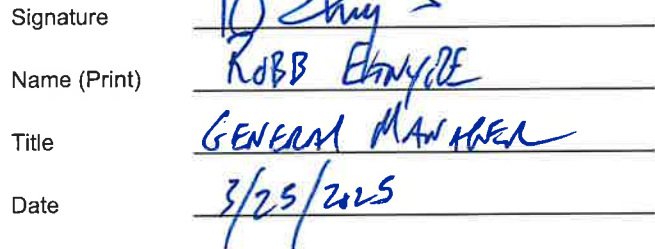 Signature
Name (Print) ROBB
Title GENERAL MANAGER
Date 3/25/2025